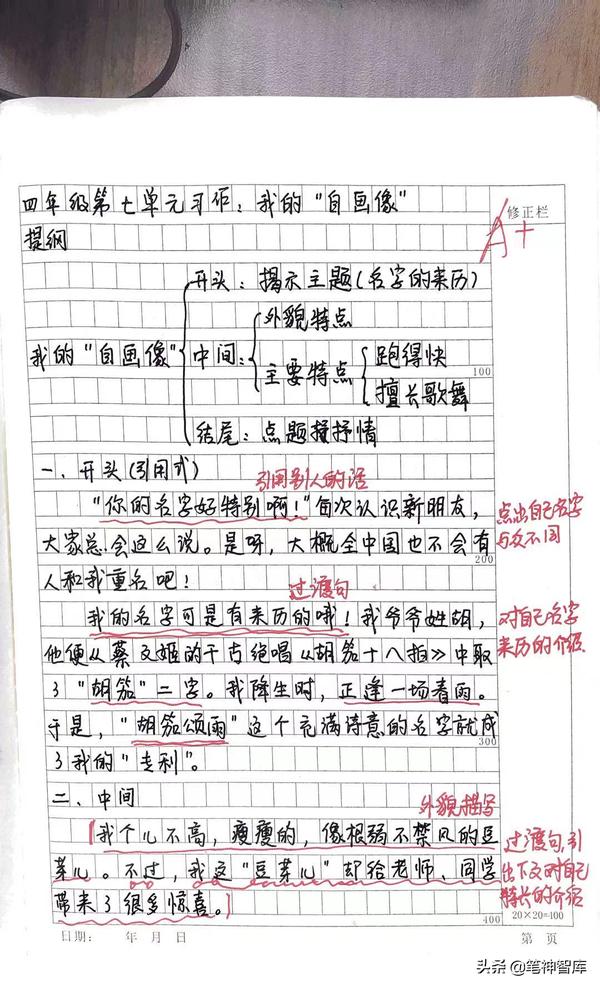 四年级第七单元习作：我的“自画像”
修正栏
A+
提纲
开头：揭示主题（名字的来历）
外貌特点
我的“自画像”
中间：
主要特点
跑得快
100
擅长歌舞
结尾：点题抒情
一、开头（引用式）
引用别人的话
“你的名字好特别啊！”每次认识新朋友，
点出自己名字
大家总会这么说。是呀，大概全中国也不会有
与众不同
200
人和我重名吧！
过渡句
我的名字可是有来历的哦！我爷爷姓胡，
对自己名字
他便从蔡文姬的千古绝唱《胡笳十八拍》中取
来历的介绍
了“胡笳”二字。我降生时，正逢一场春雨。
于是，“胡笳颂雨”这个充满诗意的名字就成
300
了我的“专利”。
二、中间
外貌描写
我个儿不高，瘦瘦的，像根弱不禁风的豆
过渡句，引
芽儿。不过，我这“豆芽儿”却给老师、同学
出下文对自己
带来了很多惊喜。
特长的介绍
400
20×20=400
日期： 年 月 日
第 页
头条 @笔神智库